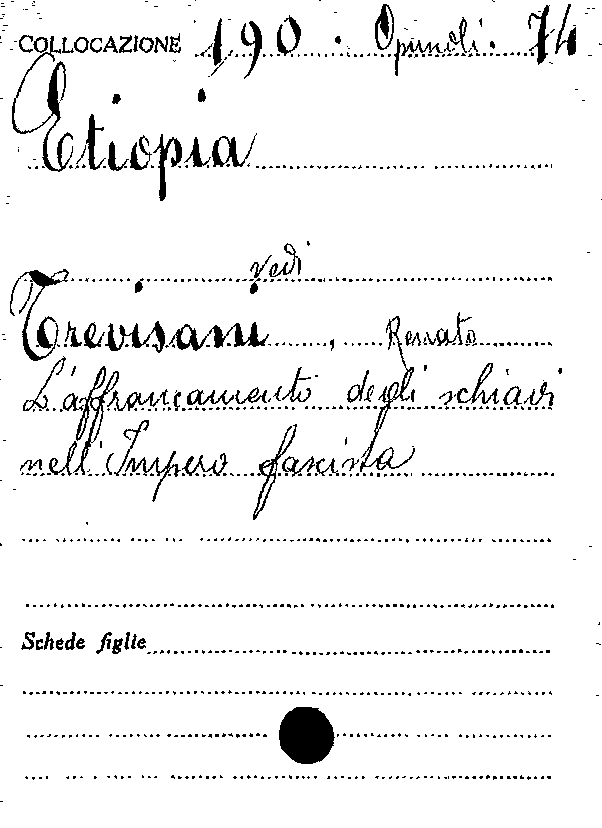 COLLOCAZIONE 190 . Opuscoli . 74
Etiopia
vedi
Trevisani, Renato
L'affrancamento degli schiavi
nell'Impero fascista
Schede figlie